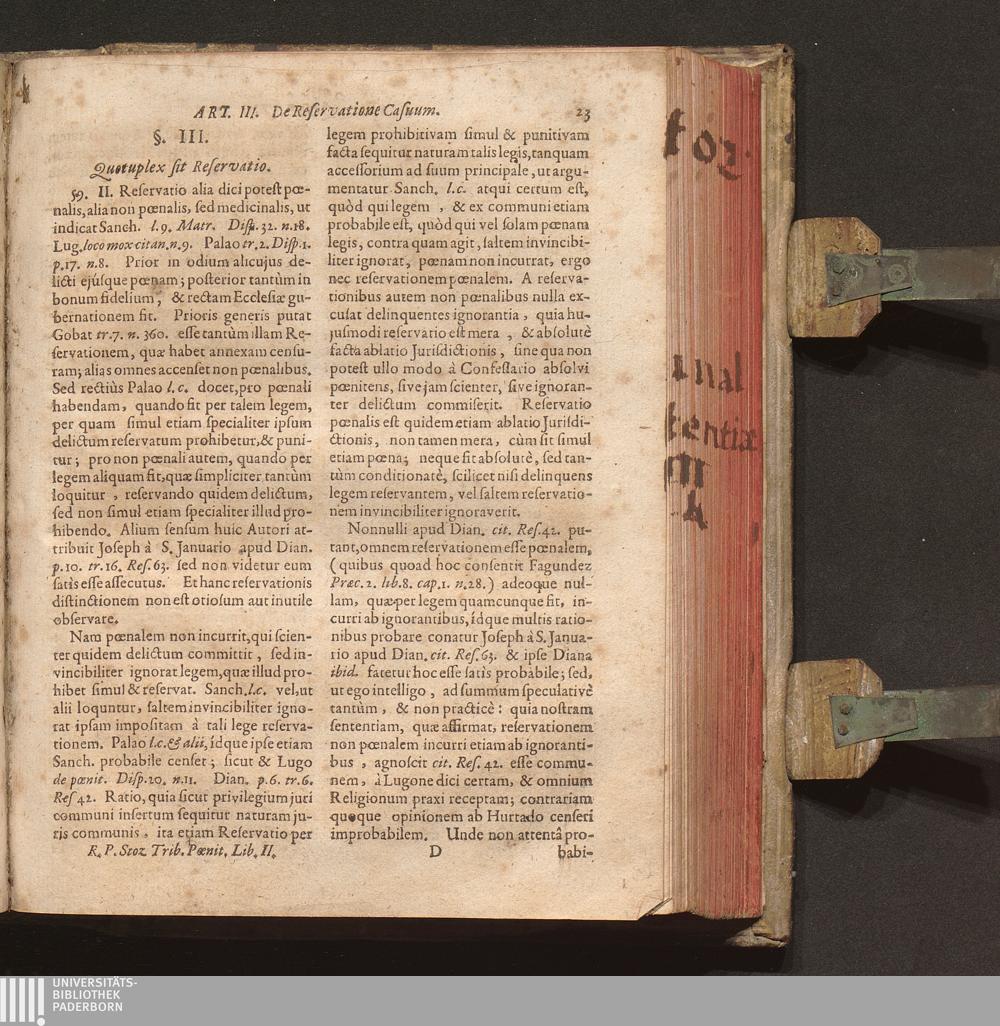 ART. III. De Reservatione Casuum. 23
§. III.
Quotuplex sit Reservatio.
59. II. Reservatio alia dici potest pœ-
nalis, alia non pœnalis, sed medicinalis, ut
indicat Sanch. l. 9. Matr. Disp. 32. n. 18.
Lug. loco mox citan. n. 9. Palao tr. 2. Disp. 1.
p. 17. n. 8. Prior in odium alicujus de-
licti ejúsque pœnam; posterior tantùm in
bonum fidelium, & rectam Ecclesiæ gu-
bernationem fit. Prioris generis putat
Gobat tr. 7. n. 360. esse tantùm illam Re-
servationem, quæ habet annexam censu-
ram; alias omnes accenset non pœnalibus.
Sed rectiùs Palao l. c. docet, pro pœnali
habendam, quando fit per talem legem,
per quam simul etiam specialiter ipsum
delictum reservatum prohibetur, & puni-
tur; pro non pœnali autem, quando per
legem aliquam fit, quæ simpliciter tantùm
loquitur, reservando quidem delictum,
sed non simul etiam specialiter illud pro-
hibendo. Alium sensum huic Autori at-
tribuit Joseph à S. Januario apud Dian.
p. 10. tr. 16. Res. 63. sed non videtur eum
satis esse assecutus. Et hanc reservationis
distinctionem non est otiosum aut inutile
observare.
Nam pœnalem non incurrit, qui scien-
ter quidem delictum committit, sed in-
vincibiliter ignorat legem, quæ illud pro-
hibet simul & reservat. Sanch. l. c. vel, ut
alii loquntur, saltem invincibiliter igno-
rat ipsam impositam à tali lege reserva-
tionem. Palao l. c. & alii, idque ipse etiam
Sanch. probabile censet; sicut & Lugo
de pœnit. Disp. 20. n. 11. Dian. p. 6. tr. 6.
Res 42. Ratio, quia sicut privilegium juri
communi insertum sequitur naturam ju-
ris communis, ita etiam Reservatio per
R. P. Stoz Trib. Pœnit. Lib. II.
legem prohibitivam simul & punitivam
facta sequitur naturam talis legis, tanquam
accessorium ad suum principale, ut argu-
mentatur Sanch. l. c. atqui certum est,
quòd qui legem, & ex communi etiam
probabile est, quòd qui vel solam pœnam
legis, contra quam agit, saltem invincibi-
liter ignorat, pœnam non incurrat, ergo
nec reservationem pœnalem. A reserva-
tionibus autem non pœnalibus nulla ex-
cusat delinquentes ignorantia, quia hu-
jusmodi reservatio est mera, & absolutè
facta ablatio Jurisdictionis, sine qua non
potest ullo modo à Confessario absolvi
pœnitens, sive jam scienter, sive ignoran-
ter delictum commiserit. Reservatio
pœnalis est quidem etiam ablatio Jurisdi-
ctionis, non tamen mera, cùm sit simul
etiam pœna; neque fit absolutè, sed tan-
tùm conditionatè, scilicet nisi delinquens
legem reservantem, vel saltem reservatio-
nem invincibiliter ignoraverit.
Nonnulli apud Dian. cit. Res. 42. pu-
tant, omnem reservationem esse pœnalem,
(quibus quoad hoc consentit Fagundez
Præc. 2. lib. 8. cap. 1. n. 28.) adeoque nul-
lam, quæ per legem quamcunque fit, in-
curri ab ignorantibus, ídque multis ratio-
nibus probare conatur Joseph à S. Janua-
rio apud Dian. cit. Res. 63. & ipse Diana
ibid. fatetur hoc esse satis probabile; sed,
ut ego intelligo, ad summum speculativè
tantùm, & non practicè: quia nostram
sententiam, quæ affirmat, reservationem
non pœnalem incurri etiam ab ignoranti-
bus, agnoscit cit. Res. 42. esse commu-
nem, à Lugone dici certam, & omnium
Religionum praxi receptam; contrariam
quoque opinionem ab Hurtado censeri
improbabilem. Unde non attentâ pro-
D babi-
toz.
nal
tentiæ
III
A
UNIVERSITÄTS-
BIBLIOTHEK
PADERBORN